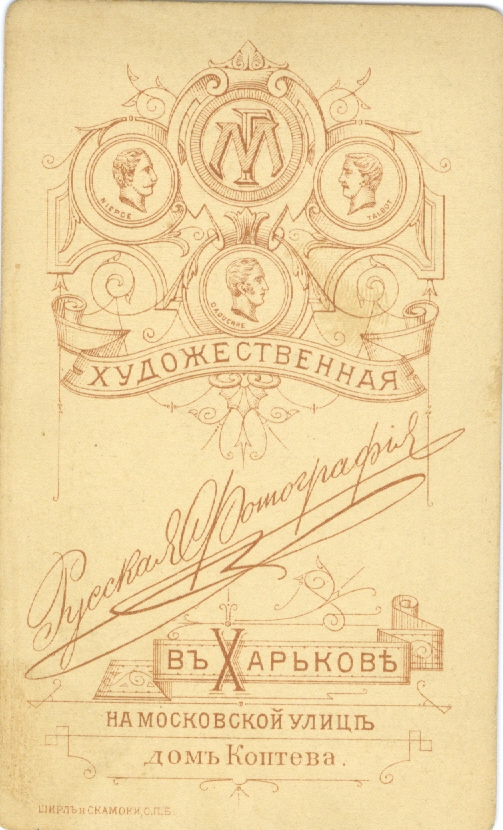 МГ
NIEPCE
TALBOT
DAGUERRE
ХУДОЖЕСТВЕННАЯ
Русская Фотографія
ВЪ ХАРЬКОВѢ
НА МОСКОВСКОЙ УЛИЦѢ
ДОМЪ Коптева.
ШИРЛЪ и СКАМОНИ, С.П.Б.